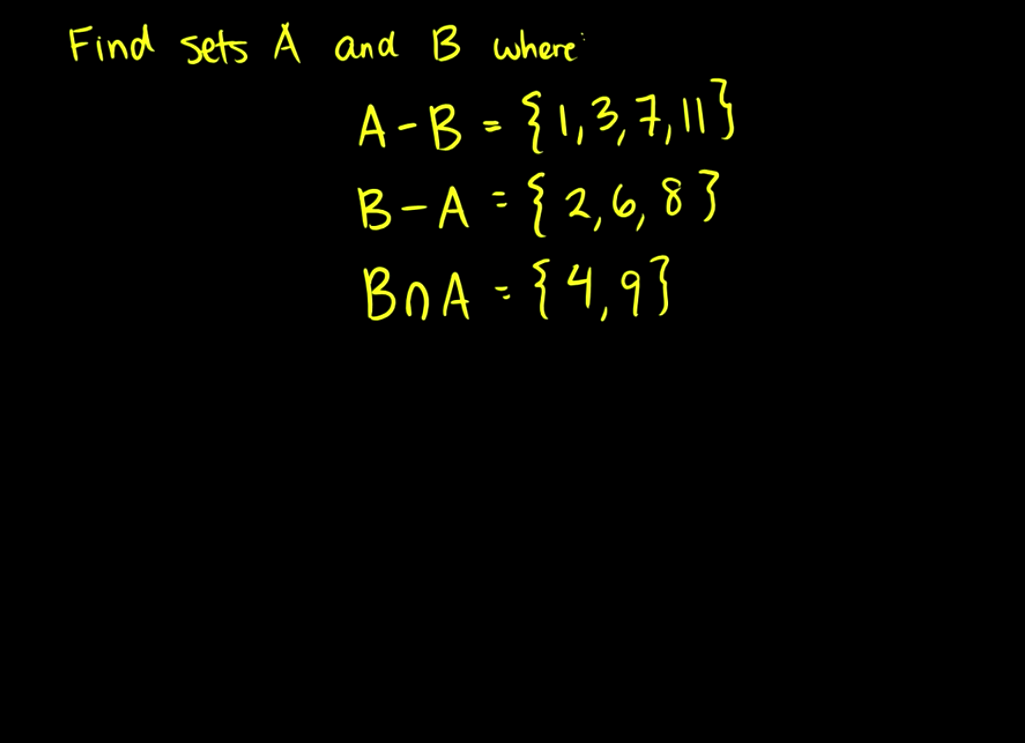 Find sets A and B where:
A - B = {1, 3, 7, 11}
B - A = {2, 6, 8}
B ∩ A = {4, 9}